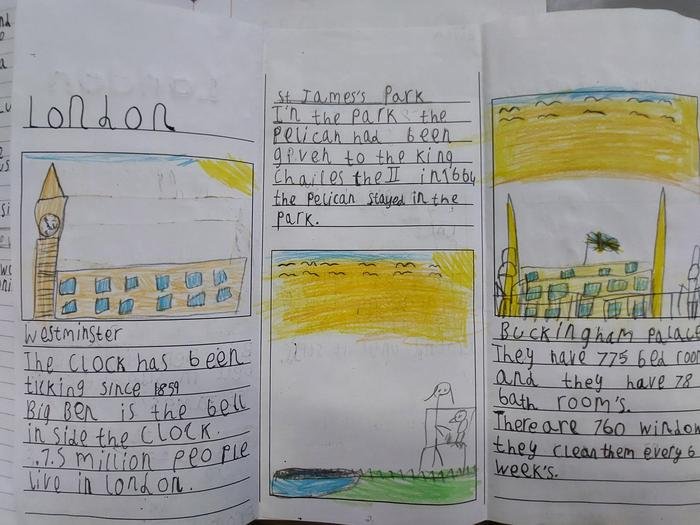 London
Westminster
The clock has been
ticking since 1859
Big Ben is the bell
in side the clock.
7.5 million people
live in london.
St James's Park
In the park the
pelican had been
given to the king
Charles the II in 1664
the pelican stayed in the
park.
Buckingham Palace
They have 775 bed room
and they have 78
bath room's.
There are 760 window
they clean them every 6
week's.